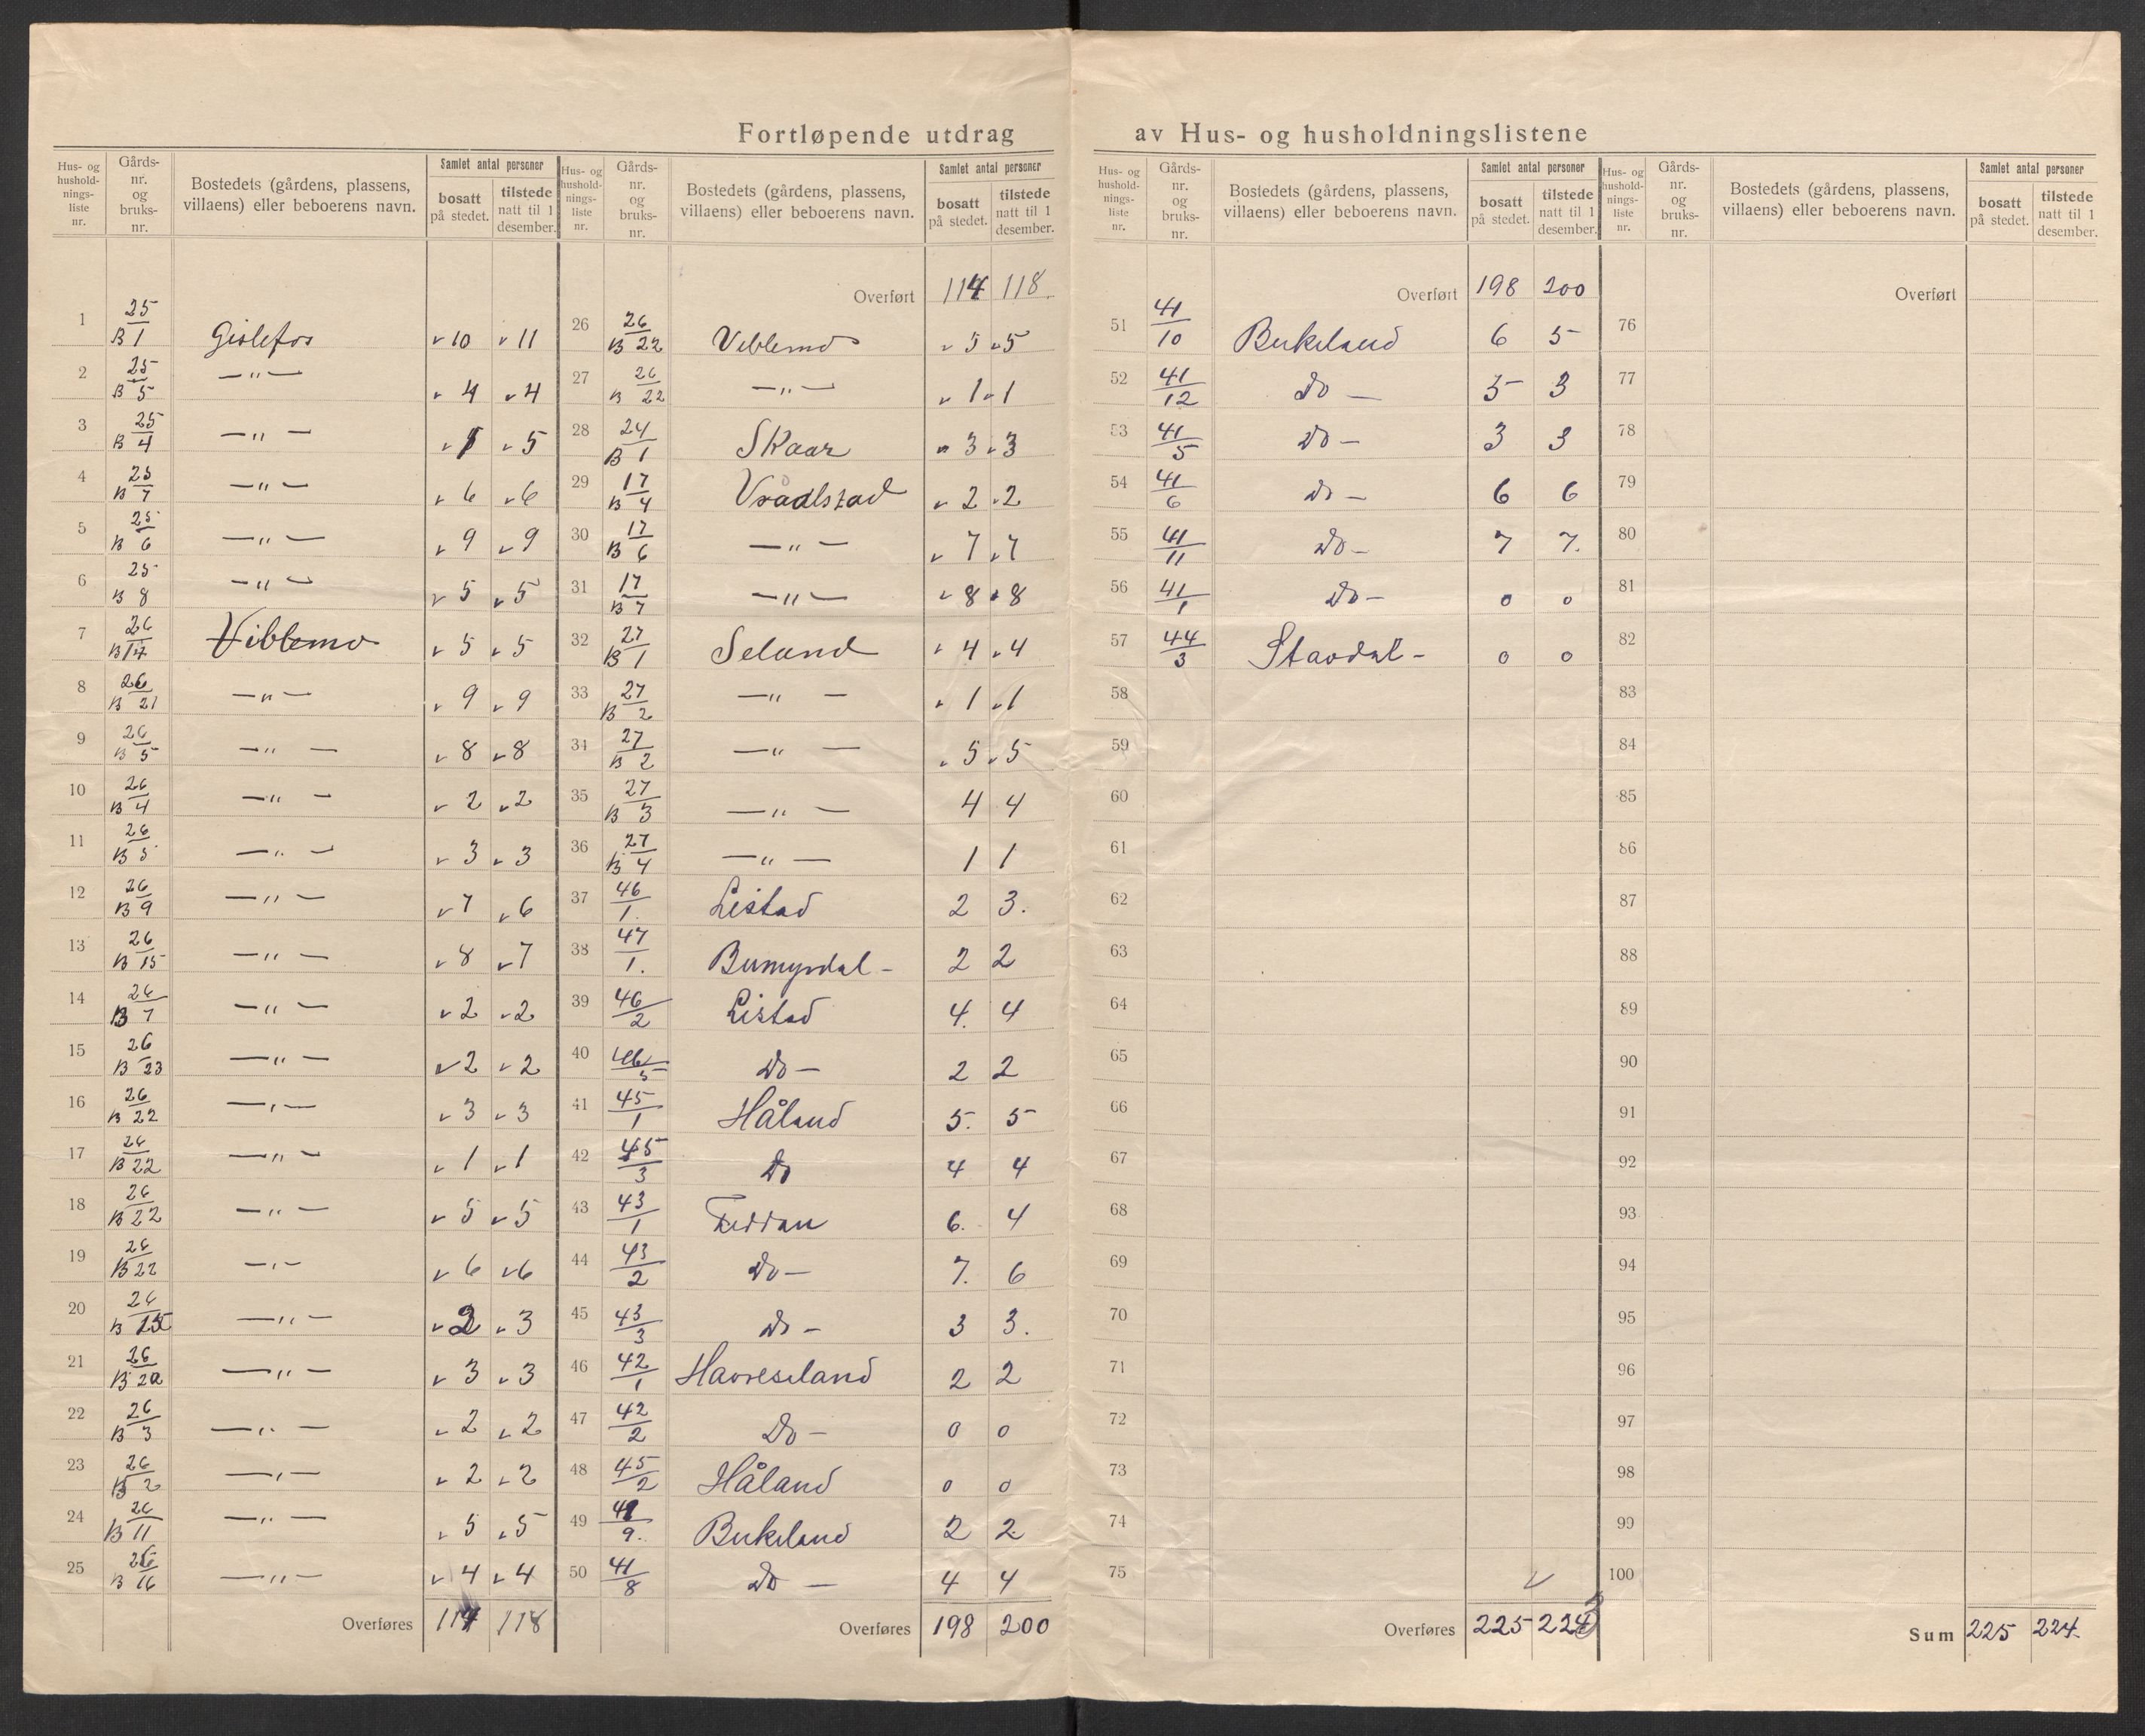 Fortløpende utdrag av Hus- og husholdningslistene
Hus- og husholdnings-liste nr. Gårds-nr. og bruks-nr. Bostedets (gårdens, plassens, villaens) eller beboerens navn. Samlet antal personer bosatt på stedet. tilstede natt til 1 desember.
1 25/B 1 Gislefos 10 11
2 25/B 5 —"— 4 4
3 25/B 4 —"— 5
4 25/B 7 —"— 6 6
5 25/B 6 —"— 9 9
6 25 B 8 —"— 5 5
7 26/B 14 Viblemo 5 5
8 26/B 21 —"— 9 9
9 26/B 5 —"— 8 8
10 26/B 4 —"— 2 2
11 26/B 5 —"— 3 3
12 26/B 9 —"— 7 6
13 26/B 15 —"— 8 7
14 26/B 7 —"— 2 2
15 26/B 23 —"— 2 2
16 26/B 22 —"— 3 3
17 26/B 22 —"— 1 1
18 26/B 22 —"— 5 5
19 26/B 22 —"— 6 6
20 26/B —"— 2 3
21 26/B 20 —"— 3 3
22 26/B 3 —"— 2 2
23 26/B 2 —"— 2 2
24 26/B 11 —"— 5 5
25 26/B 16 —"— 4 4
Overføres 114 118
Hus- og husholdnings-liste nr. Gårds-nr. og bruks-nr. Bostedets (gårdens, plassens, villaens) eller beboerens navn. Samlet antal personer bosatt på stedet. tilstede natt til 1 desember.
Overført 114 118.
26 26/B 22 Viblemo 5 5
27 26/B 22 —"— 1 1
28 24/B 1 Skaar 3 3
29 17/B 4 Vraalstad 2 2
30 17/B 6 —"— 7 7
31 17/B 7 —"— 8 8
32 27/B 1 Seland 4 4
33 27/B 2 —"— 1 1
34 27/B 2 —"— 5 5
35 27/B 3 —"— 4 4
36 27/B 4 —"— 1 1
37 46/1. Listad 2 3.
38 47/1. Bumyrdal - 2 2
39 46/2 Listad 4. 4
40 46/5 Do — 2 2
41 45/1 Håland 5. 5
42 45/3 Do 4 4
43 43/1 Feddan 6. 4
44 43/2 Do — 7. 6
45 43/3 Do - 3 3.
46 42/1 Havreseland 2 2
47 42/2 Do - 0 0
48 45/2 Håland 0 0
49 41/9. Birkeland 2 2
50 41/8 Do — 4 4
Overføres 198 200
Hus- og husholdnings-liste nr. Gårds-nr. og bruks-nr. Bostedets (gårdens, plassens, villaens) eller beboerens navn. Samlet antal personer bosatt på stedet. tilstede natt til 1 desember.
Overført 198 200
51 41/10 Birkeland 6 5
52 41/12 Do — 5 3
53 41/5 Do - 3 3
54 41/6 Do - 6 6
55 41/11 Do - 7 7.
56 41/1 Do - 0 0
57 44/3 Stavdal - 0 0
58
59
60
61
62
63
64
65
66
67
68
69
70
71
72
73
74
75
Overføres 225 224
Hus- og husholdnings-liste nr. Gårds-nr. og bruks-nr. Bostedets (gårdens, plassens, villaens) eller beboerens navn. Samlet antal personer bosatt på stedet. tilstede natt til 1 desember.
Overført
76
77
78
79
80
81
82
83
84
85
86
87
88
89
90
91
92
93
94
95
96
97
98
99
100
Sum 225 224.